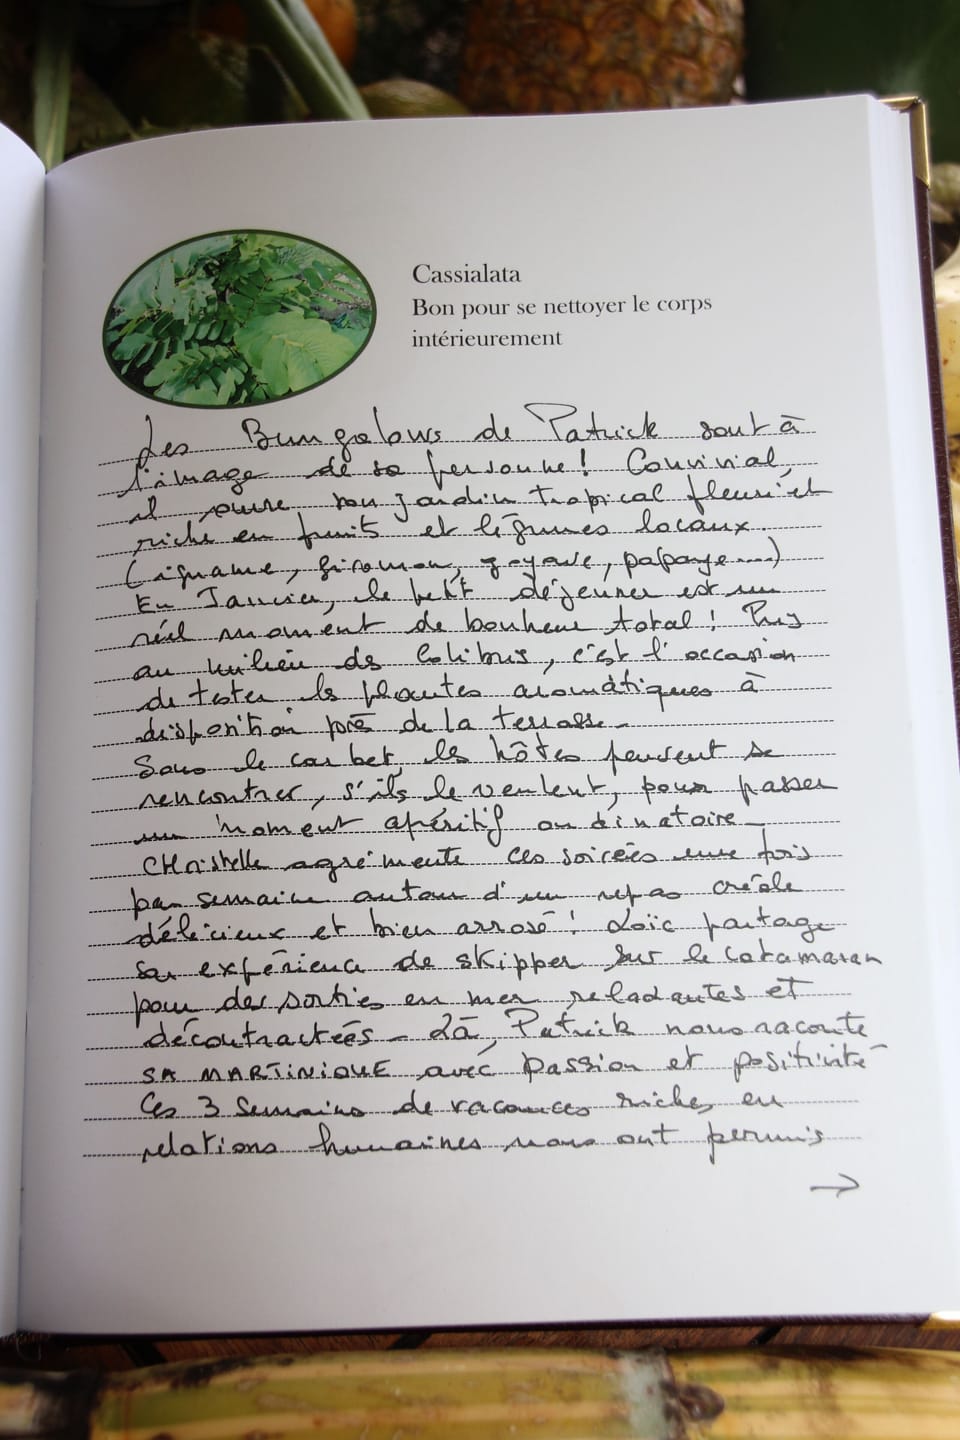 Cassialata
Bon pour se nettoyer le corps
intérieurement
Les Bungalows de Patrick sont à
l'image de sa personne! Convivial,
il ouvre son jardin tropical fleuri et
riche en fruits et légumes locaux.
(igname, giromon, goyave, papaye....)
En Janvier, le petit déjeuner est un
réel moment de bonheur total! Pris
au milieu des Colibris, c'est l'occasion
de tester les plantes aromatiques à
disposition près de la terrasse.
Sous le carbet, les hôtes peuvent se
rencontrer, s'ils le veulent, pour passer
un moment apéritif ou dinatoire.
CHristelle agrémente ces soirées une fois
par semaine autour d'un repas créole
délicieux et bien arrosé! Loïc partage
sa expérience de skipper sur le catamaran
pour des sorties en mer relaxantes et
décontractées - Là, Patrick nous raconte
SA MARTINIQUE avec passion et positivité
Ces 3 semaines de vacances riches en
relations humaines nous ont permis
→